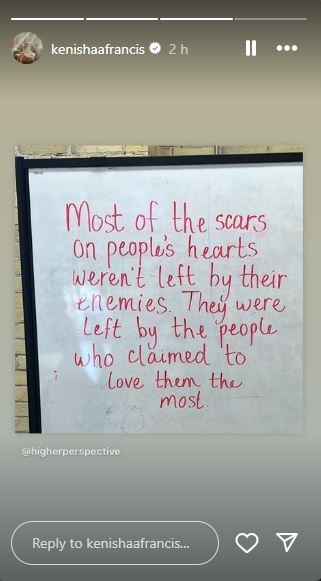 kenishaafrancis 2 h
Most of the scars
on people's hearts
weren't left by their
enemies. They were
left by the people
who claimed to
love them the
most.
@higherperspective
Reply to kenishaafrancis...